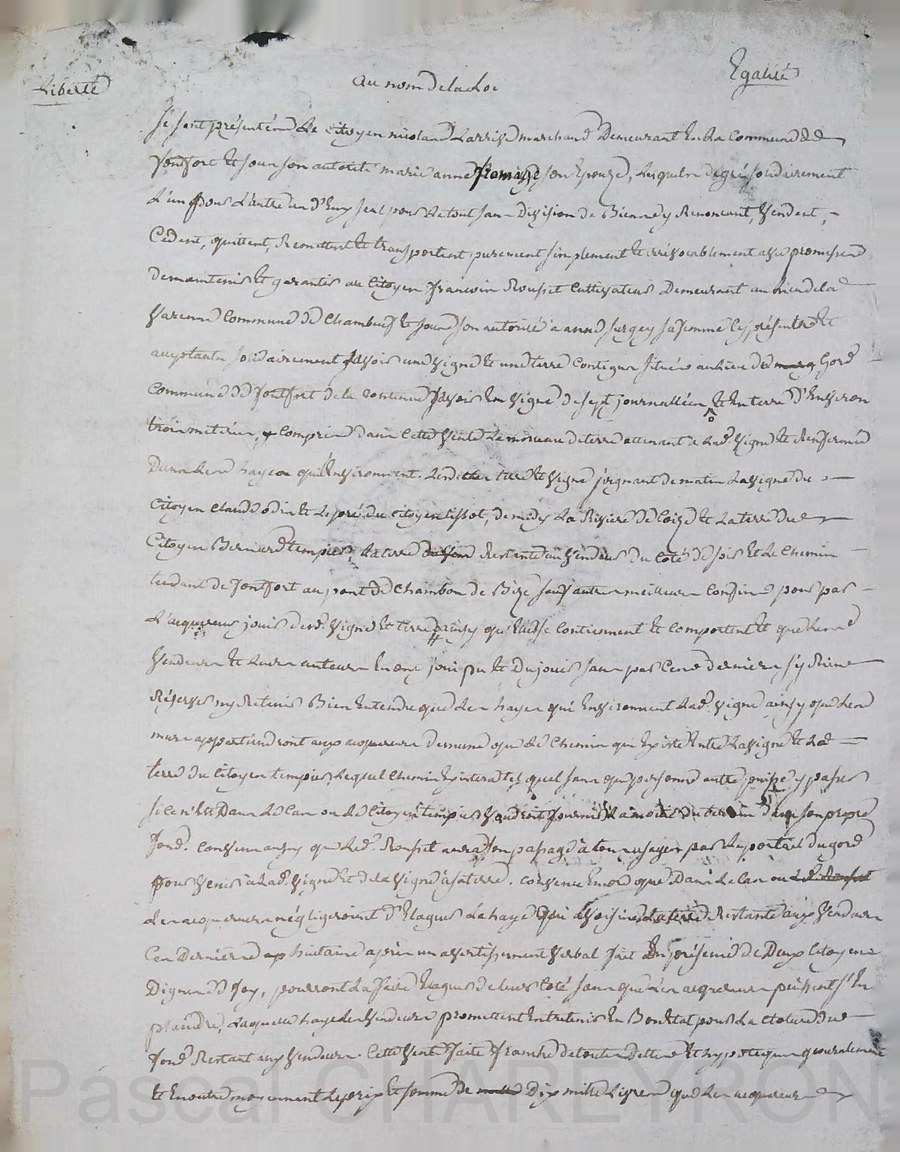 Liberté au nom de la Loi Egalité
Se sont présenté le Citoyen nicolas Larri marchand Demeurant En La Commune de
fontfort Et sous son autorité marie anne fromage son Epouze, Lesquels de gré solidairement
L'un pour L'autre un d'Eux seul pour Le tout sans Division de Biens y Renoncant, Vendent,
Cedent, quittent, Remettent et transportent purement simplement Et irrévocablement avec promesse
de maintenir Et garantir au Citoyen francois Roufret Cultivateur Demeurant au lieu de la
Varenne Commune de Chambeuf Et sous son autorité a anne surgey sa femme Cy présente Et
acceptante solidairement savoir une Vigne Et une terre Contigue située au lieu de goré
Commune de fontfort de la Contenue savoir En Vigne de sept journallées Et En terre d'Environ
trois meteré, y Compris dans Cette Vente Le morceau de terre attenant a lad. Vigne Et Renfermé
Dans les hayes qui L'Environnent. Lesdites terre Et Vigne joignant de matin La Vigne du
Citoyen Claude odin Et Le pré du Citoyen tissot, de midy La Riviere de Coize Et La terre du
Citoyen Bernard tempier, La terre Restante au Vendeur du Coté de soir Et Le Chemin
tendant de fontfort au pont de Chambon de Bize sauf autres meilleurs Confins pour par
L'acquereur jouir desd. Vigne Et terre ainsy qu'Elles se Contiennent Et Comportent Et que Les
Vendeurs Et Leurs auteurs En ont joui pu Et du jouir sans par Ces derniers s'y Rien
Réserver ny Retenir Bien Entendu que Les hayes qui Environnent Lad. Vigne ainsy que Les
murs appartiendront aux acquereurs de meme que Le Chemin qui Existe Entre La Vigne Et La
terre du Citoyen tempier Lequel Chemin Existera tel quel sans que personne autre puisse y passer
si ce n'est Dans Le Cas ou Le Citoyen tempier Voudroit fournir La moitié du terrein dans son propre
fond. Convenu ausy que Led. Roufret aura son passage a tous usages par Le portail du goré
pour Venir a Lad. Vigne Et de la Vigne a sa terre. Convenu Encore que Dans Le Cas ou
Les acquereurs négligeroient d'Elaguer La haye qui Voisine La terre Restante aux Vendeurs
Ces Derniers aux huitaine apres un avertissement Verbal fait En présence de Deux Citoyens
Dignes de foy, pourront La faire Elaguer de leurs Coté sans que Les acquereurs puissent s'En
plaindre, Laquelle haye les Vendeurs promettent Entretenir En Bon Etat pour La Cloture du
fond Restant aux Vendeurs. Cette Vente faite franche de toutes dettes Et hypoteques quelconques
Et En outre moyennant Le prix Et somme de Dix mille Livres que Les acquereurs
Pascal CHAREYRON